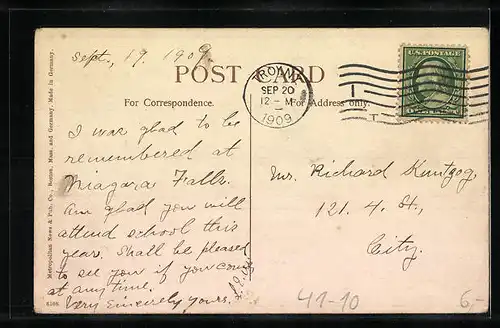 Sept. 19. 1909.
POST CARD
For Correspondence.
For Address only.
TROY, N.Y.
SEP 20
12 - M
1909
1
U.S. POSTAGE
I was glad to be
remembered at
Niagara Falls.
Am glad you will
attend school this
year. Shall be pleased
to see you if you come
at any time.
Very Sincerely yours,
Mr. Richard
121. 4. St.,
City.
Metropolitan News & Pub. Co., Boston, Mass. and Germany. Made in Germany.
41-10
6,-